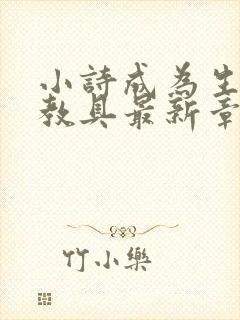 小詩成為生
教具最新章
竹小樂